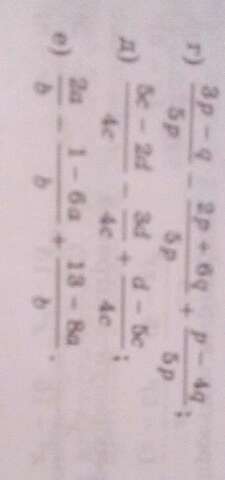 г) (3p − q)/5p − (2p + 6q)/5p + (p − 4q)/5p;
д) (5c − 2d)/4c − 3d/4c + (d − 5c)/4c;
е) 2a/b − (1 − 6a)/b + (13 − 8a)/b.